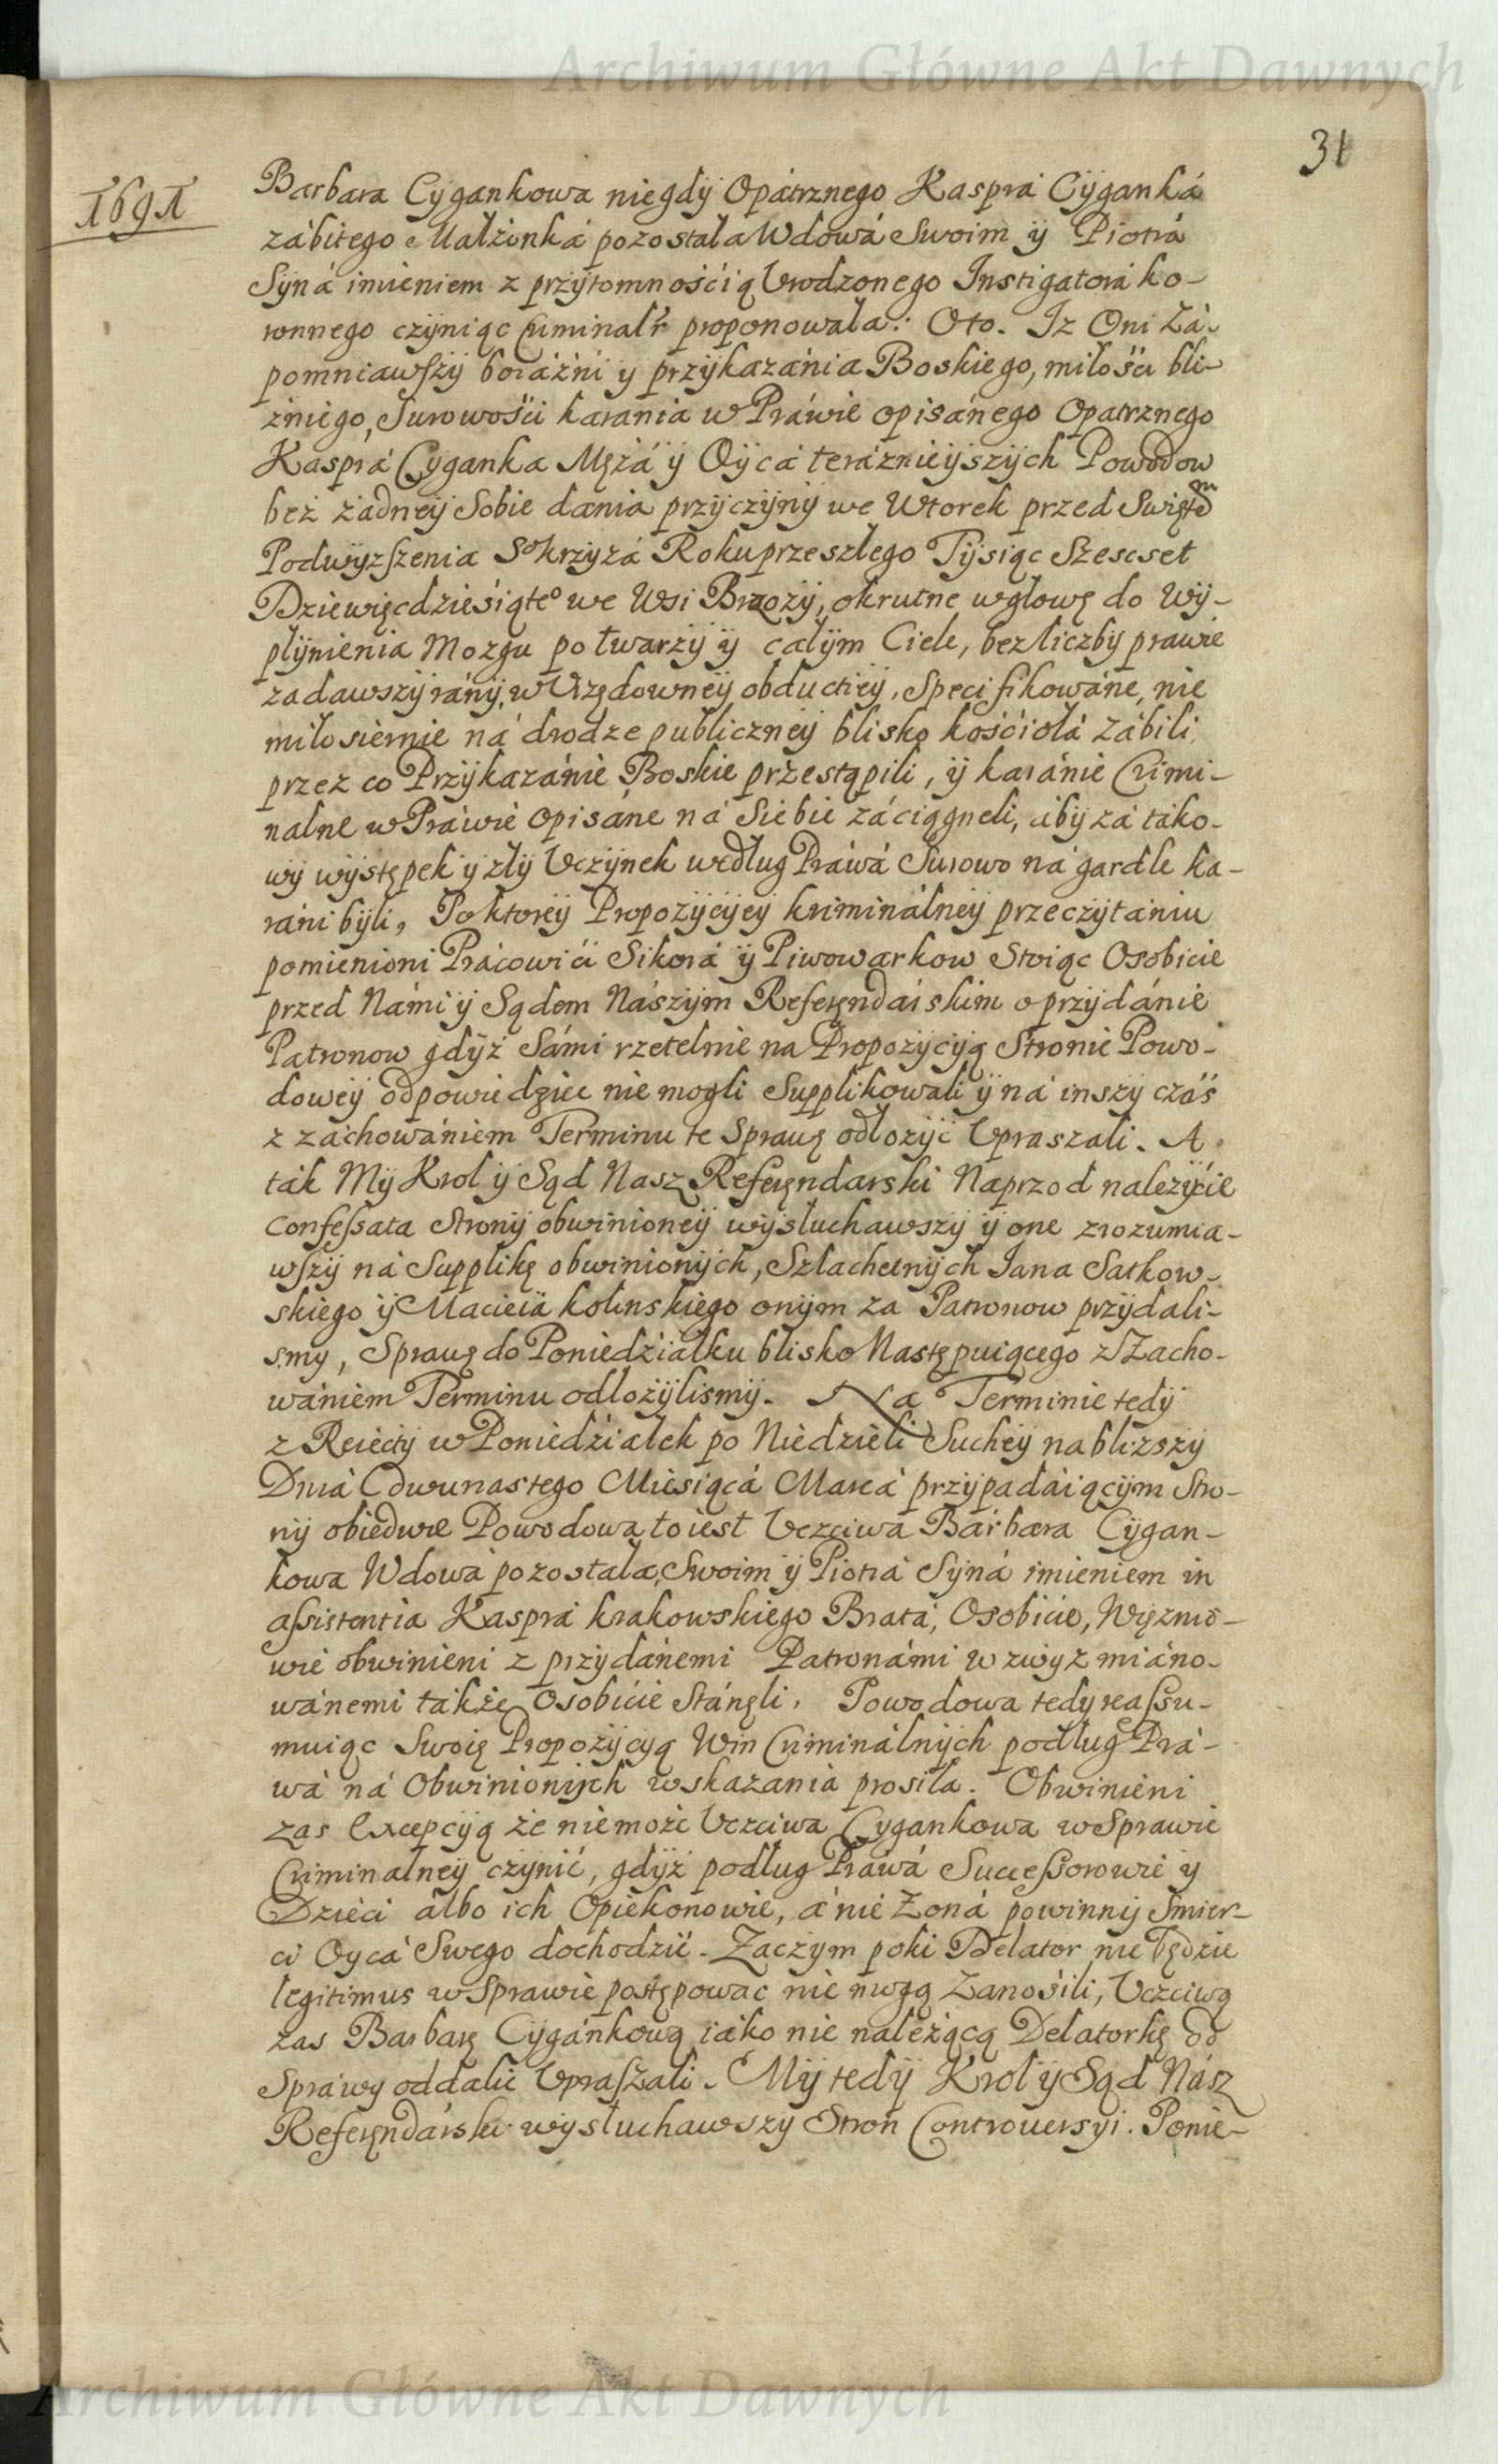 Archiwum Główne Akt Dawnych
31
1691
Barbara Cygankowa niegdÿ Opátrznego Kasprá Cÿganká
zábitego Małżonká pozostała Wdowá Swoim ÿ Piotrá
Sÿná imieniem z przÿtomnośćią Vrodzonego Instigatorá ko-
ronnego czÿniąc Criminalr proponowała: Oto. Iz Oni Zá-
pomniawſzÿ boiáźni y przÿkazánia Boskiego, miłośći bli-
źniego, Surowośći karania w Práwie opisánego Opatrznego
Kasprá Cyganka Mężá ÿ Oÿcá teráznieÿszÿch Powodow
bez żadneÿ Sobie dania przÿczÿnÿ we Wtorek przed Swiętem
Podwÿzſzenia So krzÿzá Roku przeszłego Tÿsiąc Szescset
Dziewięcdzieśiąteo we Wsi Brzozÿ, okrutne wgłowę do Wÿ-
płÿnienia Mozgu po twarzÿ ÿ całÿm Ciele, bez liczbÿ prawie
zadawszÿ ránÿ, w Vrzędowneÿ obductieÿ, Specifikowáne, nie
miłosiernie ná drodze publiczneÿ blisko kośćiołá zábili,
przez co Przÿkazánie Boskie przestąpili, ÿ karánie Crimi-
nalne w Práwie opisáne ná Siebie záciągneli, ábÿ zá táko-
wÿ wÿstępek ÿ złÿ Vczÿnek według Práwá Surowo ná gardle ka-
ráni bÿli, Po ktoreÿ Propozÿcÿeÿ kriminálneÿ przeczÿtániu
pomienioni Prácowići Sikorá ÿ Piwowarkow Stoiąc Osobiscie
przed Námi ÿ Sądem Nászÿm Referęndárskim o przÿdánie
Patronow gdÿż Sámi rzetelnie na Propozÿcÿą Stronie Powo-
doweÿ odpowiedziec nie mogli Supplikowali ÿ ná inszÿ czás
z záchowániem Terminu te Sprawę odłożÿć Vpraszali. A
ták Mÿ Krol ÿ Sąd Nasz Referęndarski Naprzod nalezÿcie
Confeſsata Stronÿ obwinioneÿ wÿsłuchawszÿ ÿ one zrozumia-
wſzÿ ná Supplikę obwinionÿch, Szlachetnÿch Jana Satkow-
skiego ÿ Macieiá kolinskiego onÿm za Patronow przÿdali-
smy, Sprawę do Poniedziałku blisko Nastę puiącego z Zacho-
wániem Terminu odłożÿlismÿ. Na Terminie tedÿ
z Reiectÿ w Poniedziałek po Niedzieli Sucheÿ nablizszÿ
Dniá dwunastego Mieśiącá Marcá przÿpadáiącÿm Stro-
nÿ obiedwie Powodowa to iest Vczciwa Bárbara Cÿgan-
kowa Wdowá pozostała, Swoim ÿ Piotrá Sÿná imieniem in
aſsistentia Kasprá krakowskiego Bratá, Osobicie, Więznio-
wie obwinieni z przÿdánemi Patronámi w zwÿz miáno-
wánemi także Osobićie Stánęli, Powodowa tedÿ reaſsu-
muiąc Swoię Propozÿcÿą Win Criminálnÿch podług Prá-
wá ná Obwinionÿch wskazania prosiła. Obwinieni
zas Excepcÿą że niemoże Vczciwa Cygankowa w Sprawie
Criminalneÿ czÿnić, gdÿż podług Práwá Succeſsorowie ÿ
Dzieci álbo ich Opiekonowie, á nie Żoná powinnÿ Smier-
ci Oycá Swego dochodzić. Zaczÿm poki Delator nie będzie
legitimus w Sprawie postępowac nie mogą Zanosili, Vczciwą
zas Barbarę Cÿgánkową iáko nie nalezącą Delatorkę od
Spráwy oddalić Vpraſzali. Mÿ tedÿ Krol ÿ Sąd Nász
Referęndárski wÿsłuchawszÿ Stron Controuersyi. Ponie-
Archiwum Główne Akt Dawnych